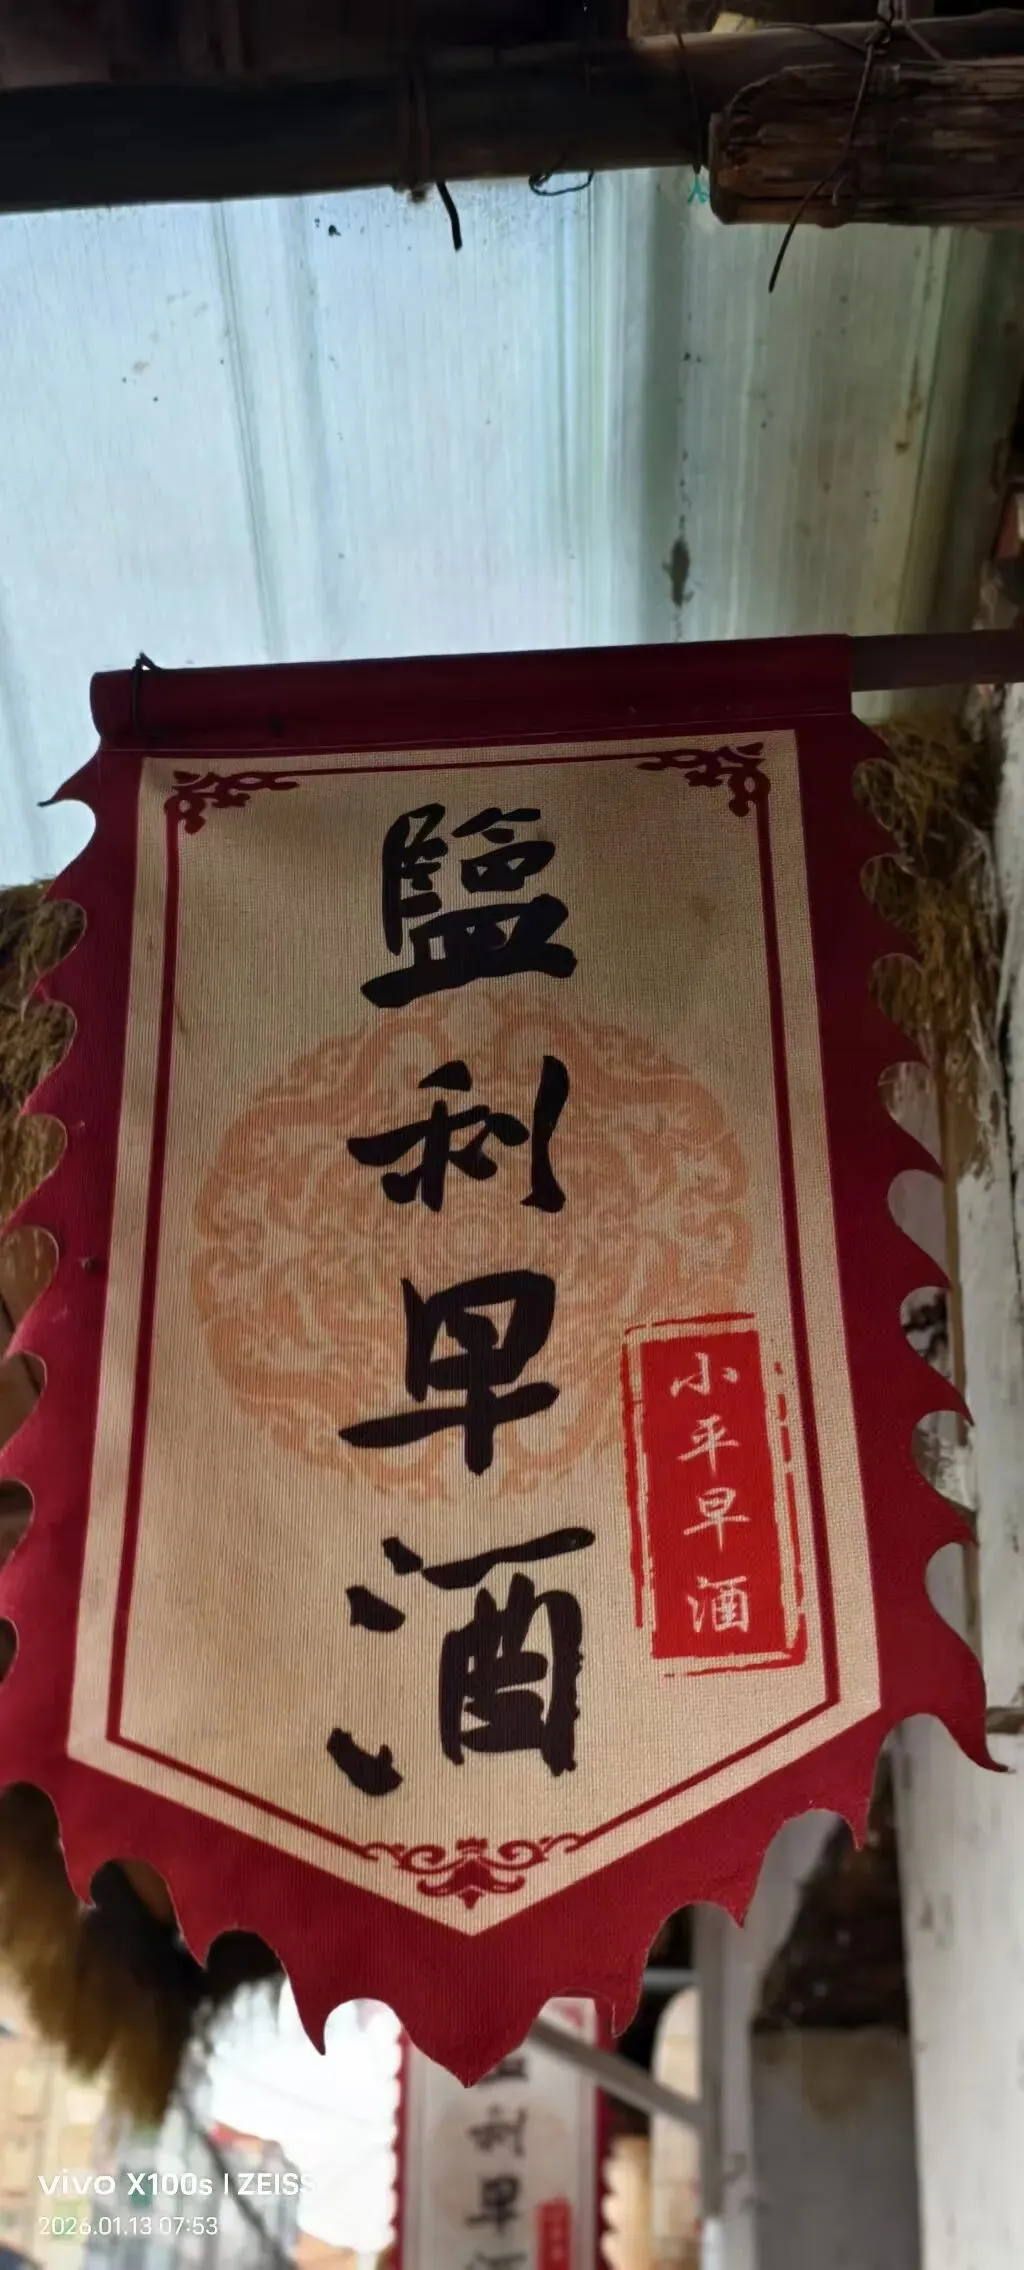 鹽利早酒
小平早酒
利早
vivo X100s | ZEISS
2026.01.13 07:53